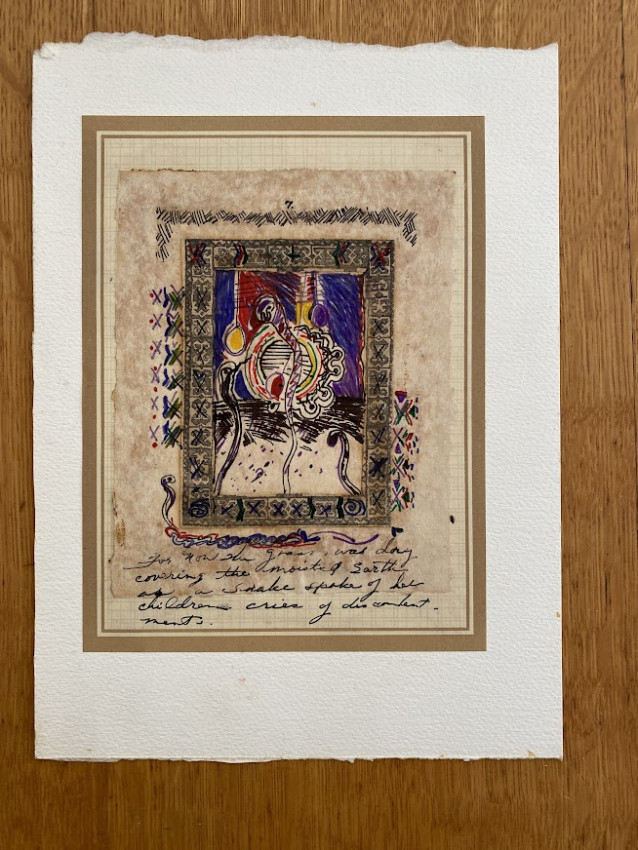 7.
For now the grass, was dry
covering the moisted Earth
as a Snake spoke of her
children cries of discontent-
ments.